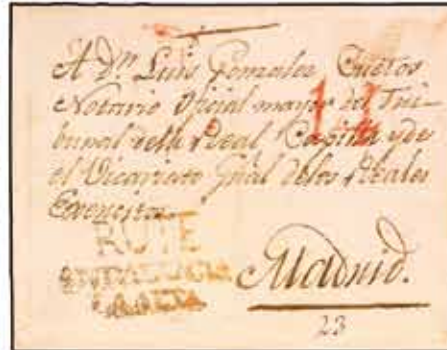 A Dn. Luis Gonzalez Cuetos
Notario Oficial mayor del Tri-
bunal de la Real Capilla y de
el Vicariato Gral de los Reales
Exercitos.
14
RUTE
ANDALUCIA
BAXA
Madrid.
23